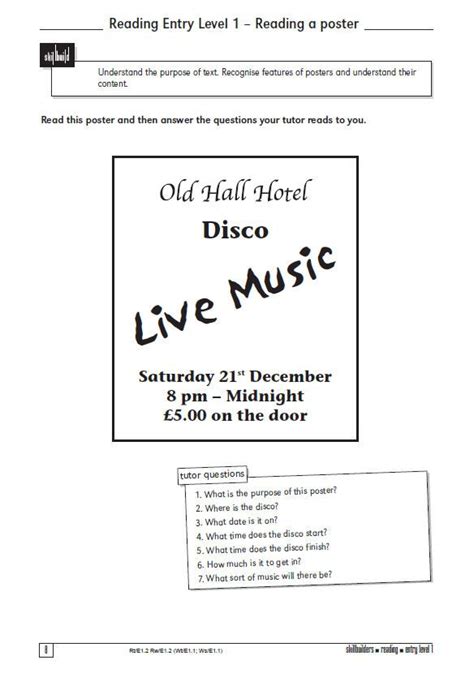 Reading Entry Level 1 – Reading a poster
skillbuild
Understand the purpose of text. Recognise features of posters and understand their
content.
Read this poster and then answer the questions your tutor reads to you.
Old Hall Hotel
Disco
Live Music
Saturday 21st December
8 pm – Midnight
£5.00 on the door
tutor questions
1. What is the purpose of this poster?
2. Where is the disco?
3. What date is it on?
4. What time does the disco start?
5. What time does the disco finish?
6. How much is it to get in?
7. What sort of music will there be?
8
Rt/E1.2 Rw/E1.2 (Wt/E1.1; Ws/E1.1)
skillbuilders ■ reading ■ entry level 1